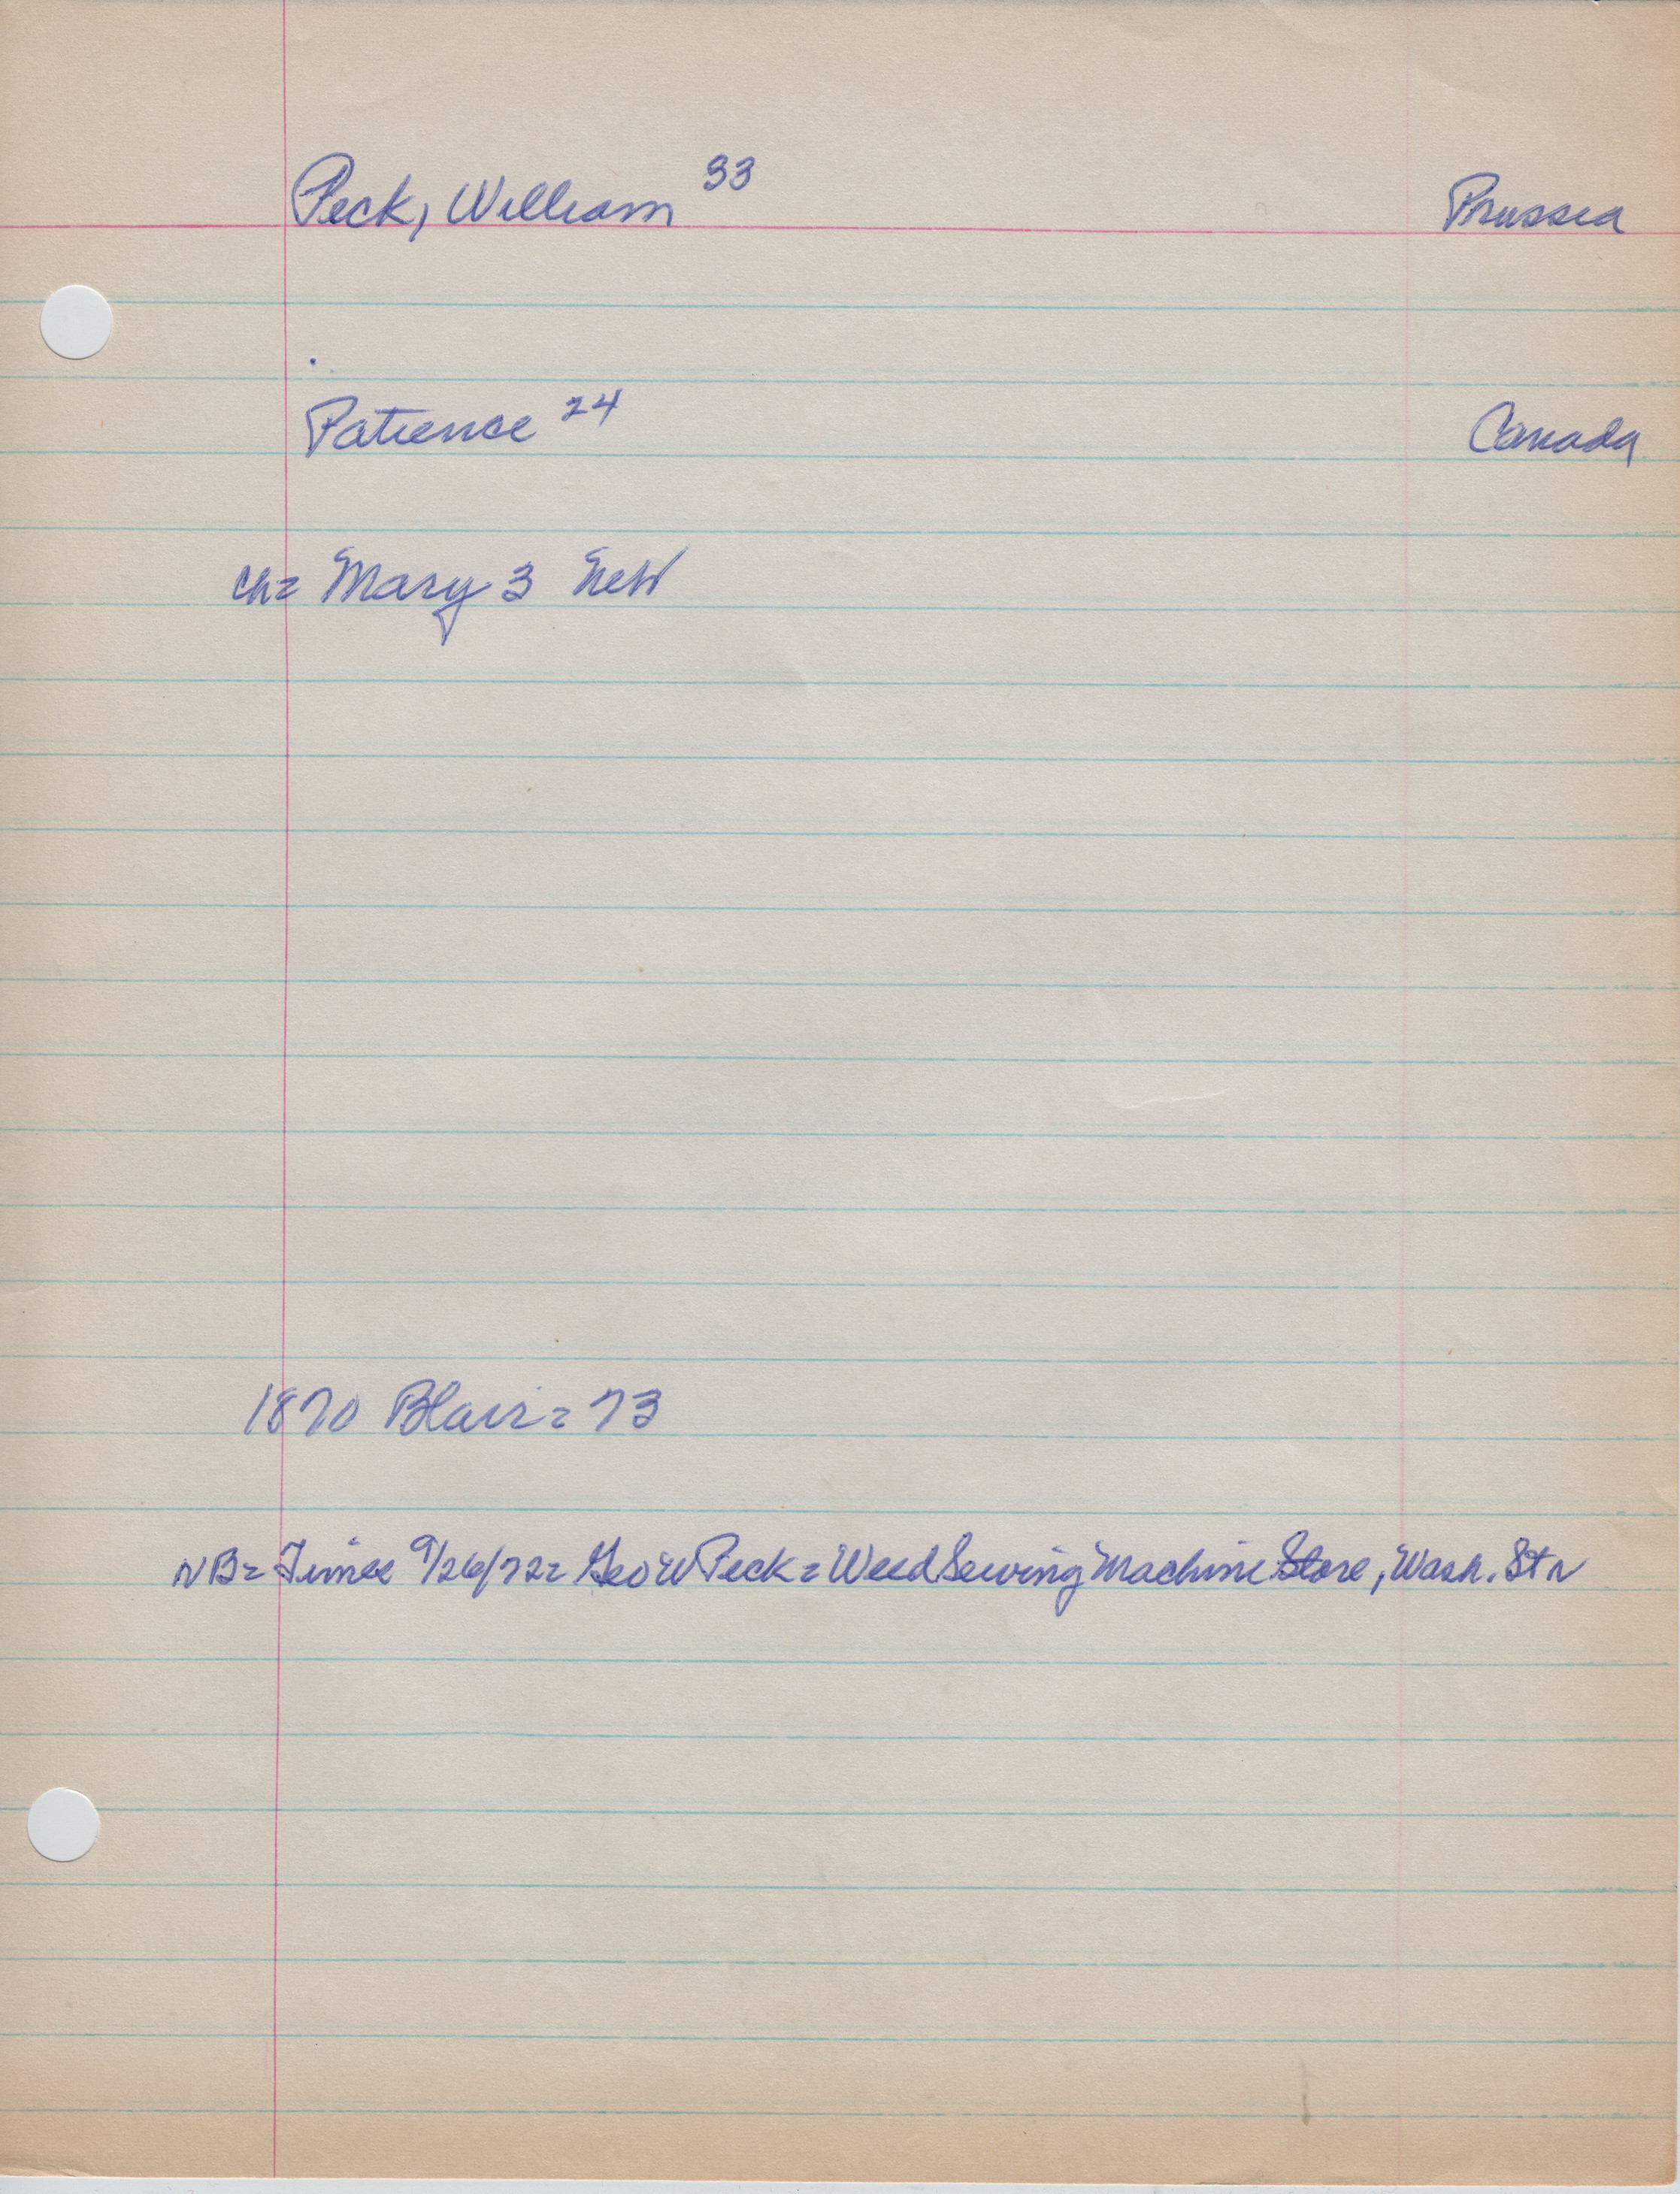 Peck, William 33 Prussia
Patience 24 Canada
ch= Mary 3 Neb
1870 Blair = 73
NB= Times 9/26/72= Geo W Peck = Weed Sewing Machine Store, Wash. St n